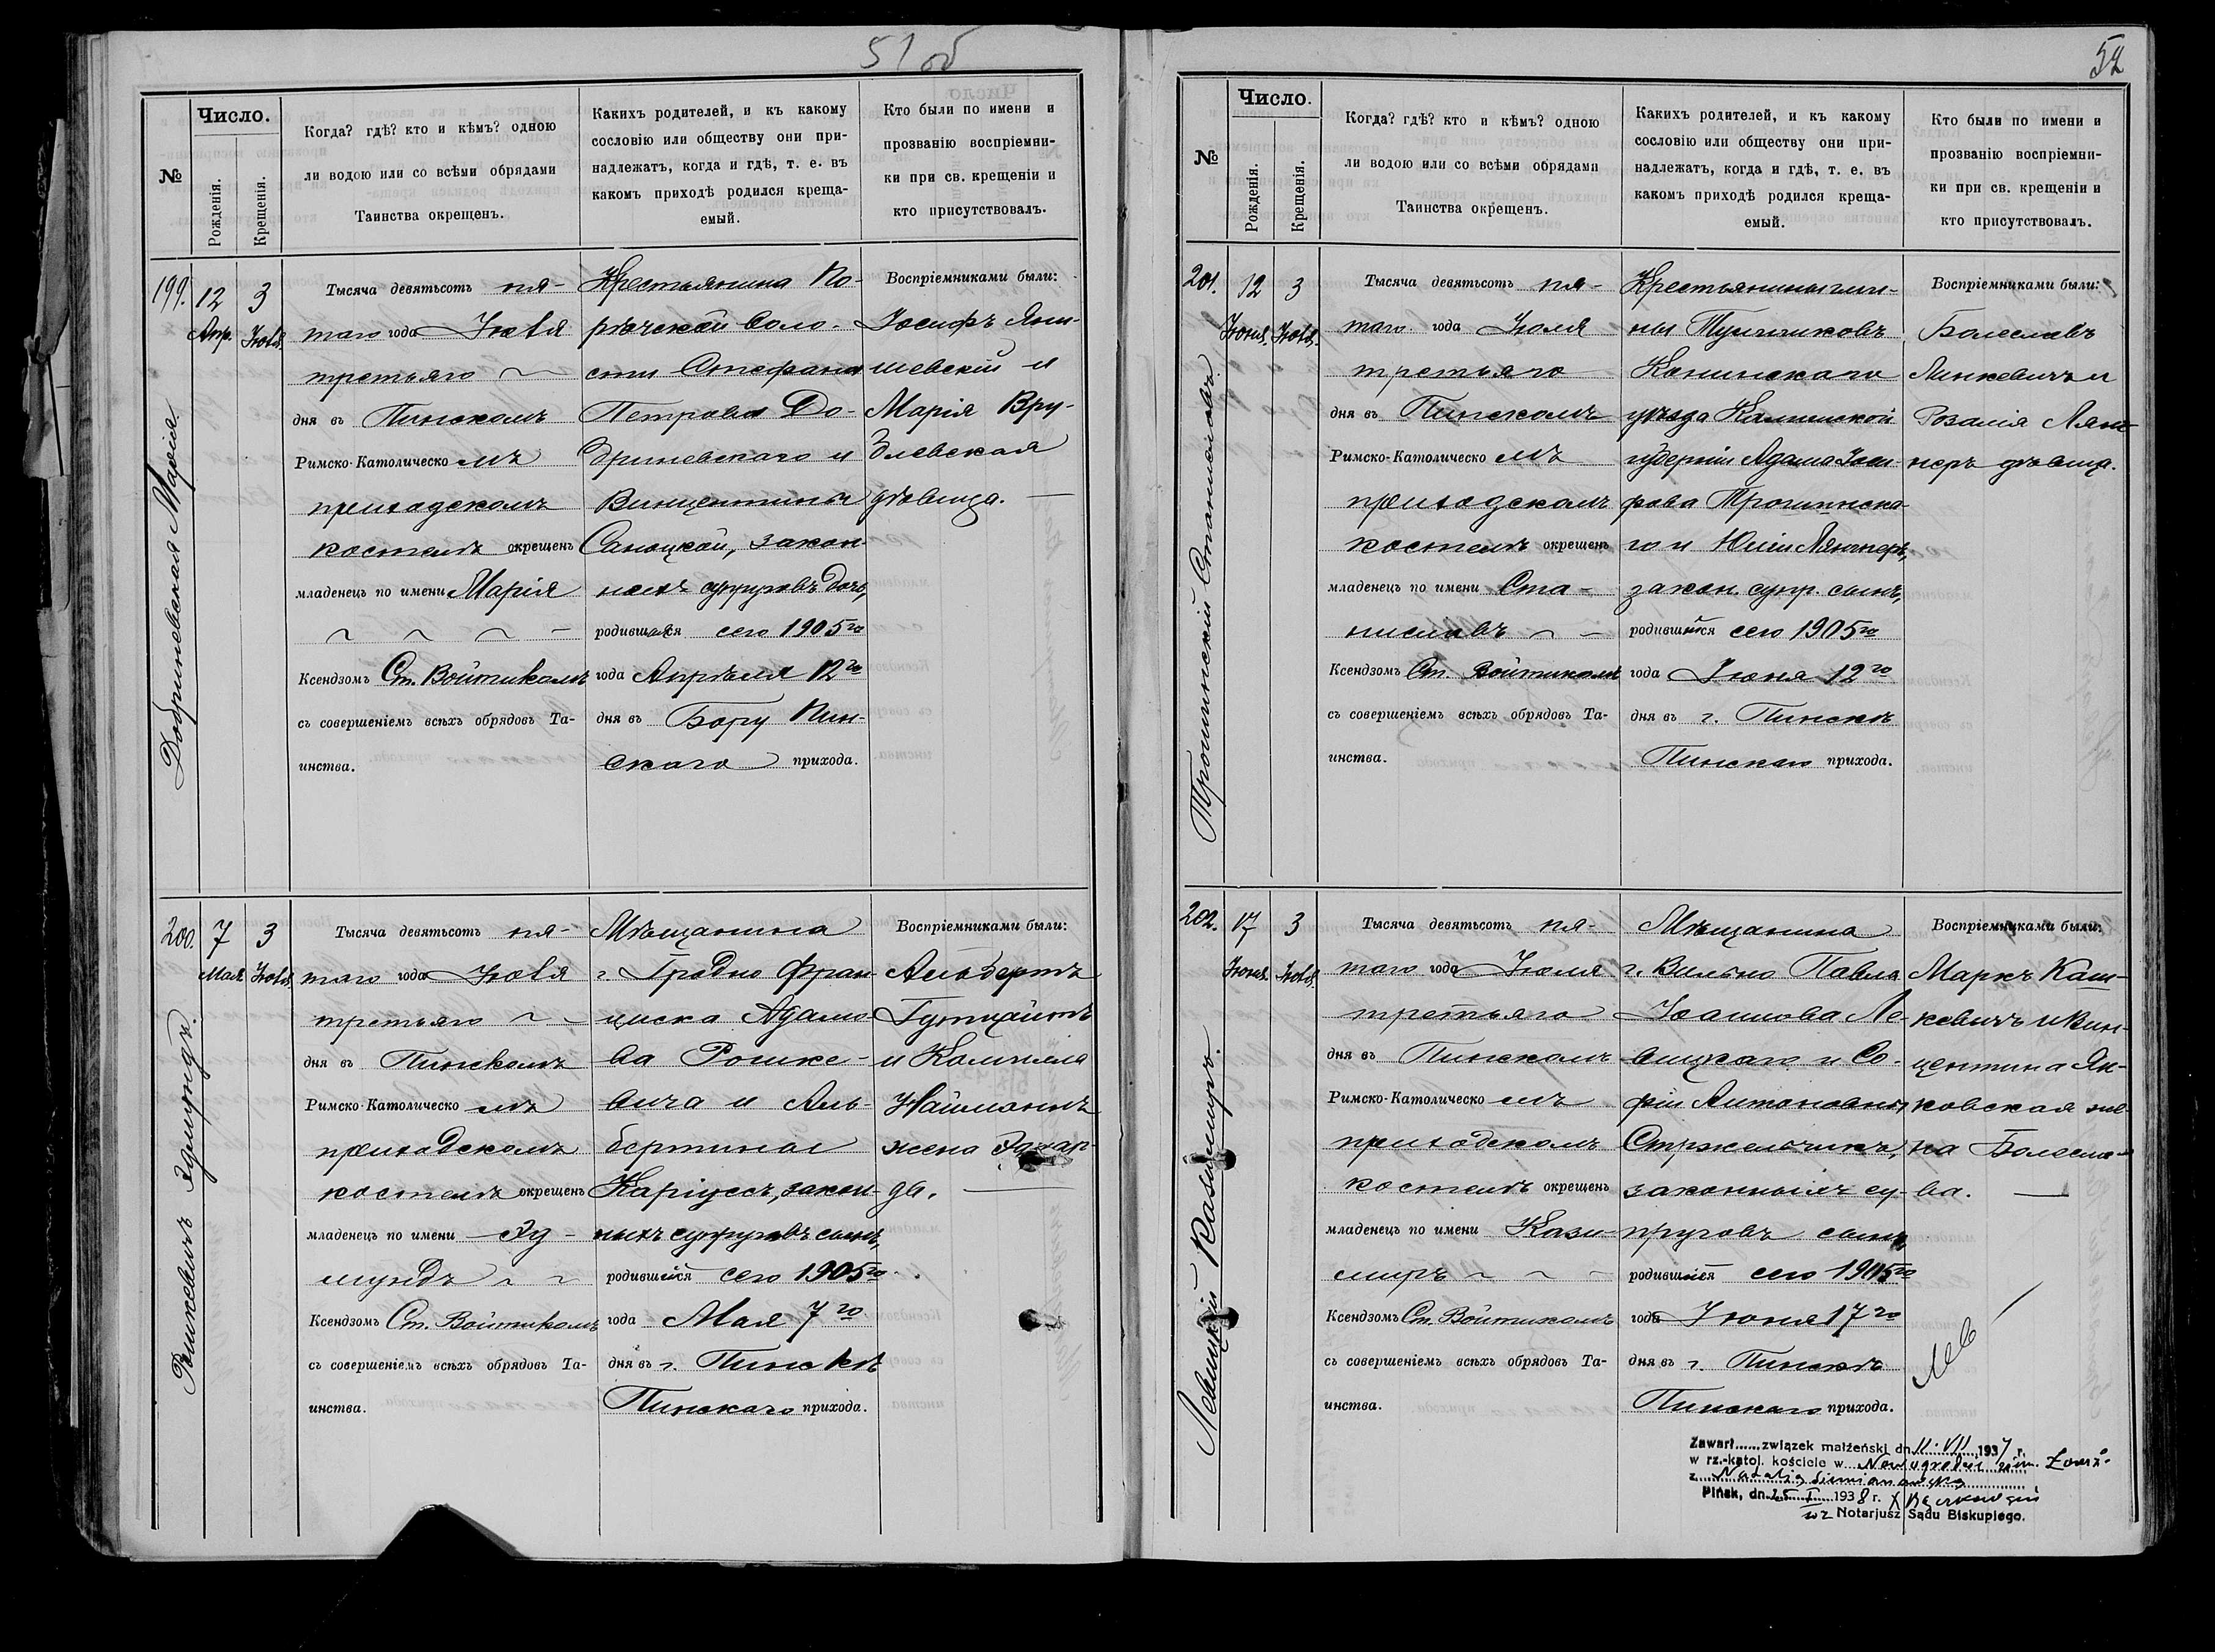 51 об
№
Число.
Рожденія.
Крещенія.
Когда? гдѣ? кто и кѣмъ? одною
ли водою или со всѣми обрядами
Таинства окрещенъ.
Какихъ родителей, и къ какому
сословію или обществу они при-
надлежатъ, когда и гдѣ, т. е. въ
какомъ приходѣ родился креща-
емый.
Кто были по имени и
прозванію воспріемни-
ки при св. крещеніи и
кто присутствовалъ.
199.
12
Апр.
3
Іюля.
Добриневская Марія.
Тысяча девятьсотъ пя-
таго года Іюля
третьяго
дня въ Пинскомъ
Римско-Католическомъ
приходскомъ
костелѣ окрещенъ
младенецъ по имени Марія
Ксендзомъ Ст. Войтикомъ
съ совершеніемъ всѣхъ обрядовъ Та-
инства.
Крестьянина По-
рѣчской воло-
сти Стефана
Петрова До-
бриневскаго и
Винцентины
Саноцкой, закон-
ныхъ супруговъ дочь,
родившаяся сего 1905го
года Апрѣля 12го
дня въ Бору Пин-
скаго прихода.
Воспріемниками были:
Іосифъ Яни-
шевскій и
Марія Вру-
блевская
дѣвица.
200.
7
Мая
3
Іюля.
Рошкевичъ Эдмундъ.
Тысяча девятьсотъ пя-
таго года Іюля
третьяго
дня въ Пинскомъ
Римско-Католическомъ
приходскомъ
костелѣ окрещенъ
младенецъ по имени Эд-
мундъ
Ксендзомъ Ст. Войтикомъ
съ совершеніемъ всѣхъ обрядовъ Та-
инства.
Мѣщанина
г. Гродно Фран-
циска Адамо-
ва Рошке-
вича и Аль-
бертины
Каріусъ, закон-
ныхъ супруговъ сынъ,
родившійся сего 1905го
года Мая 7го
дня въ г. Пинскѣ
Пинскаго прихода.
Воспріемниками были:
Альбертъ
Гутцайтъ
и Камилла
Найманнъ
жена Эдуар-
да.
52
№
Число.
Рожденія.
Крещенія.
Когда? гдѣ? кто и кѣмъ? одною
ли водою или со всѣми обрядами
Таинства окрещенъ.
Какихъ родителей, и къ какому
сословію или обществу они при-
надлежатъ, когда и гдѣ, т. е. въ
какомъ приходѣ родился креща-
емый.
Кто были по имени и
прозванію воспріемни-
ки при св. крещеніи и
кто присутствовалъ.
201.
12
Іюня.
3
Іюля.
Трошинскій Станиславъ.
Тысяча девятьсотъ пя-
таго года Іюля
третьяго
дня въ Пинскомъ
Римско-Католическомъ
приходскомъ
костелѣ окрещенъ
младенецъ по имени Ста-
ниславъ
Ксендзомъ Ст. Войтикомъ
съ совершеніемъ всѣхъ обрядовъ Та-
инства.
Крестьянина гми-
ны
Конинскаго
уѣзда Калишской
губерніи Адама Іоси-
фова Трошинска-
го и Юліи Лянгнеръ,
закон. супр. сынъ,
родившійся сего 1905го
года Іюня 12го
дня въ г. Пинскѣ
Пинскаго прихода.
Воспріемниками были:
Болеславъ
Линкевичъ и
Розалія Лянг-
неръ дѣвица.
202.
17
Іюня.
3
Іюля.
Левицкій Казимиръ.
Тысяча девятьсотъ пя-
таго года Іюля
третьяго
дня въ Пинскомъ
Римско-Католическомъ
приходскомъ
костелѣ окрещенъ
младенецъ по имени Кази-
миръ
Ксендзомъ Ст. Войтикомъ
съ совершеніемъ всѣхъ обрядовъ Та-
инства.
Мѣщанина
г. Вильно Павла
Іоакимова Ле-
вицкаго и Со-
фіи Антоновны
Стржельчикъ,
законныхъ су-
пруговъ сынъ
родившійся сего 1905го
года Іюня 17го
дня въ г. Пинскѣ
Пинскаго прихода.
Воспріемниками были:
Маркъ Каш-
кевичъ и Вин-
центина Ян-
ковская же-
на Болесла-
ва.
Zawarł......związek małżeński dn. 11.VII.1937 r.
w rz.-katol. kościele w
z Natalią
Pińsk, dn. 25.I.1938 r.
wz Notarjusz Sądu Biskupiego.